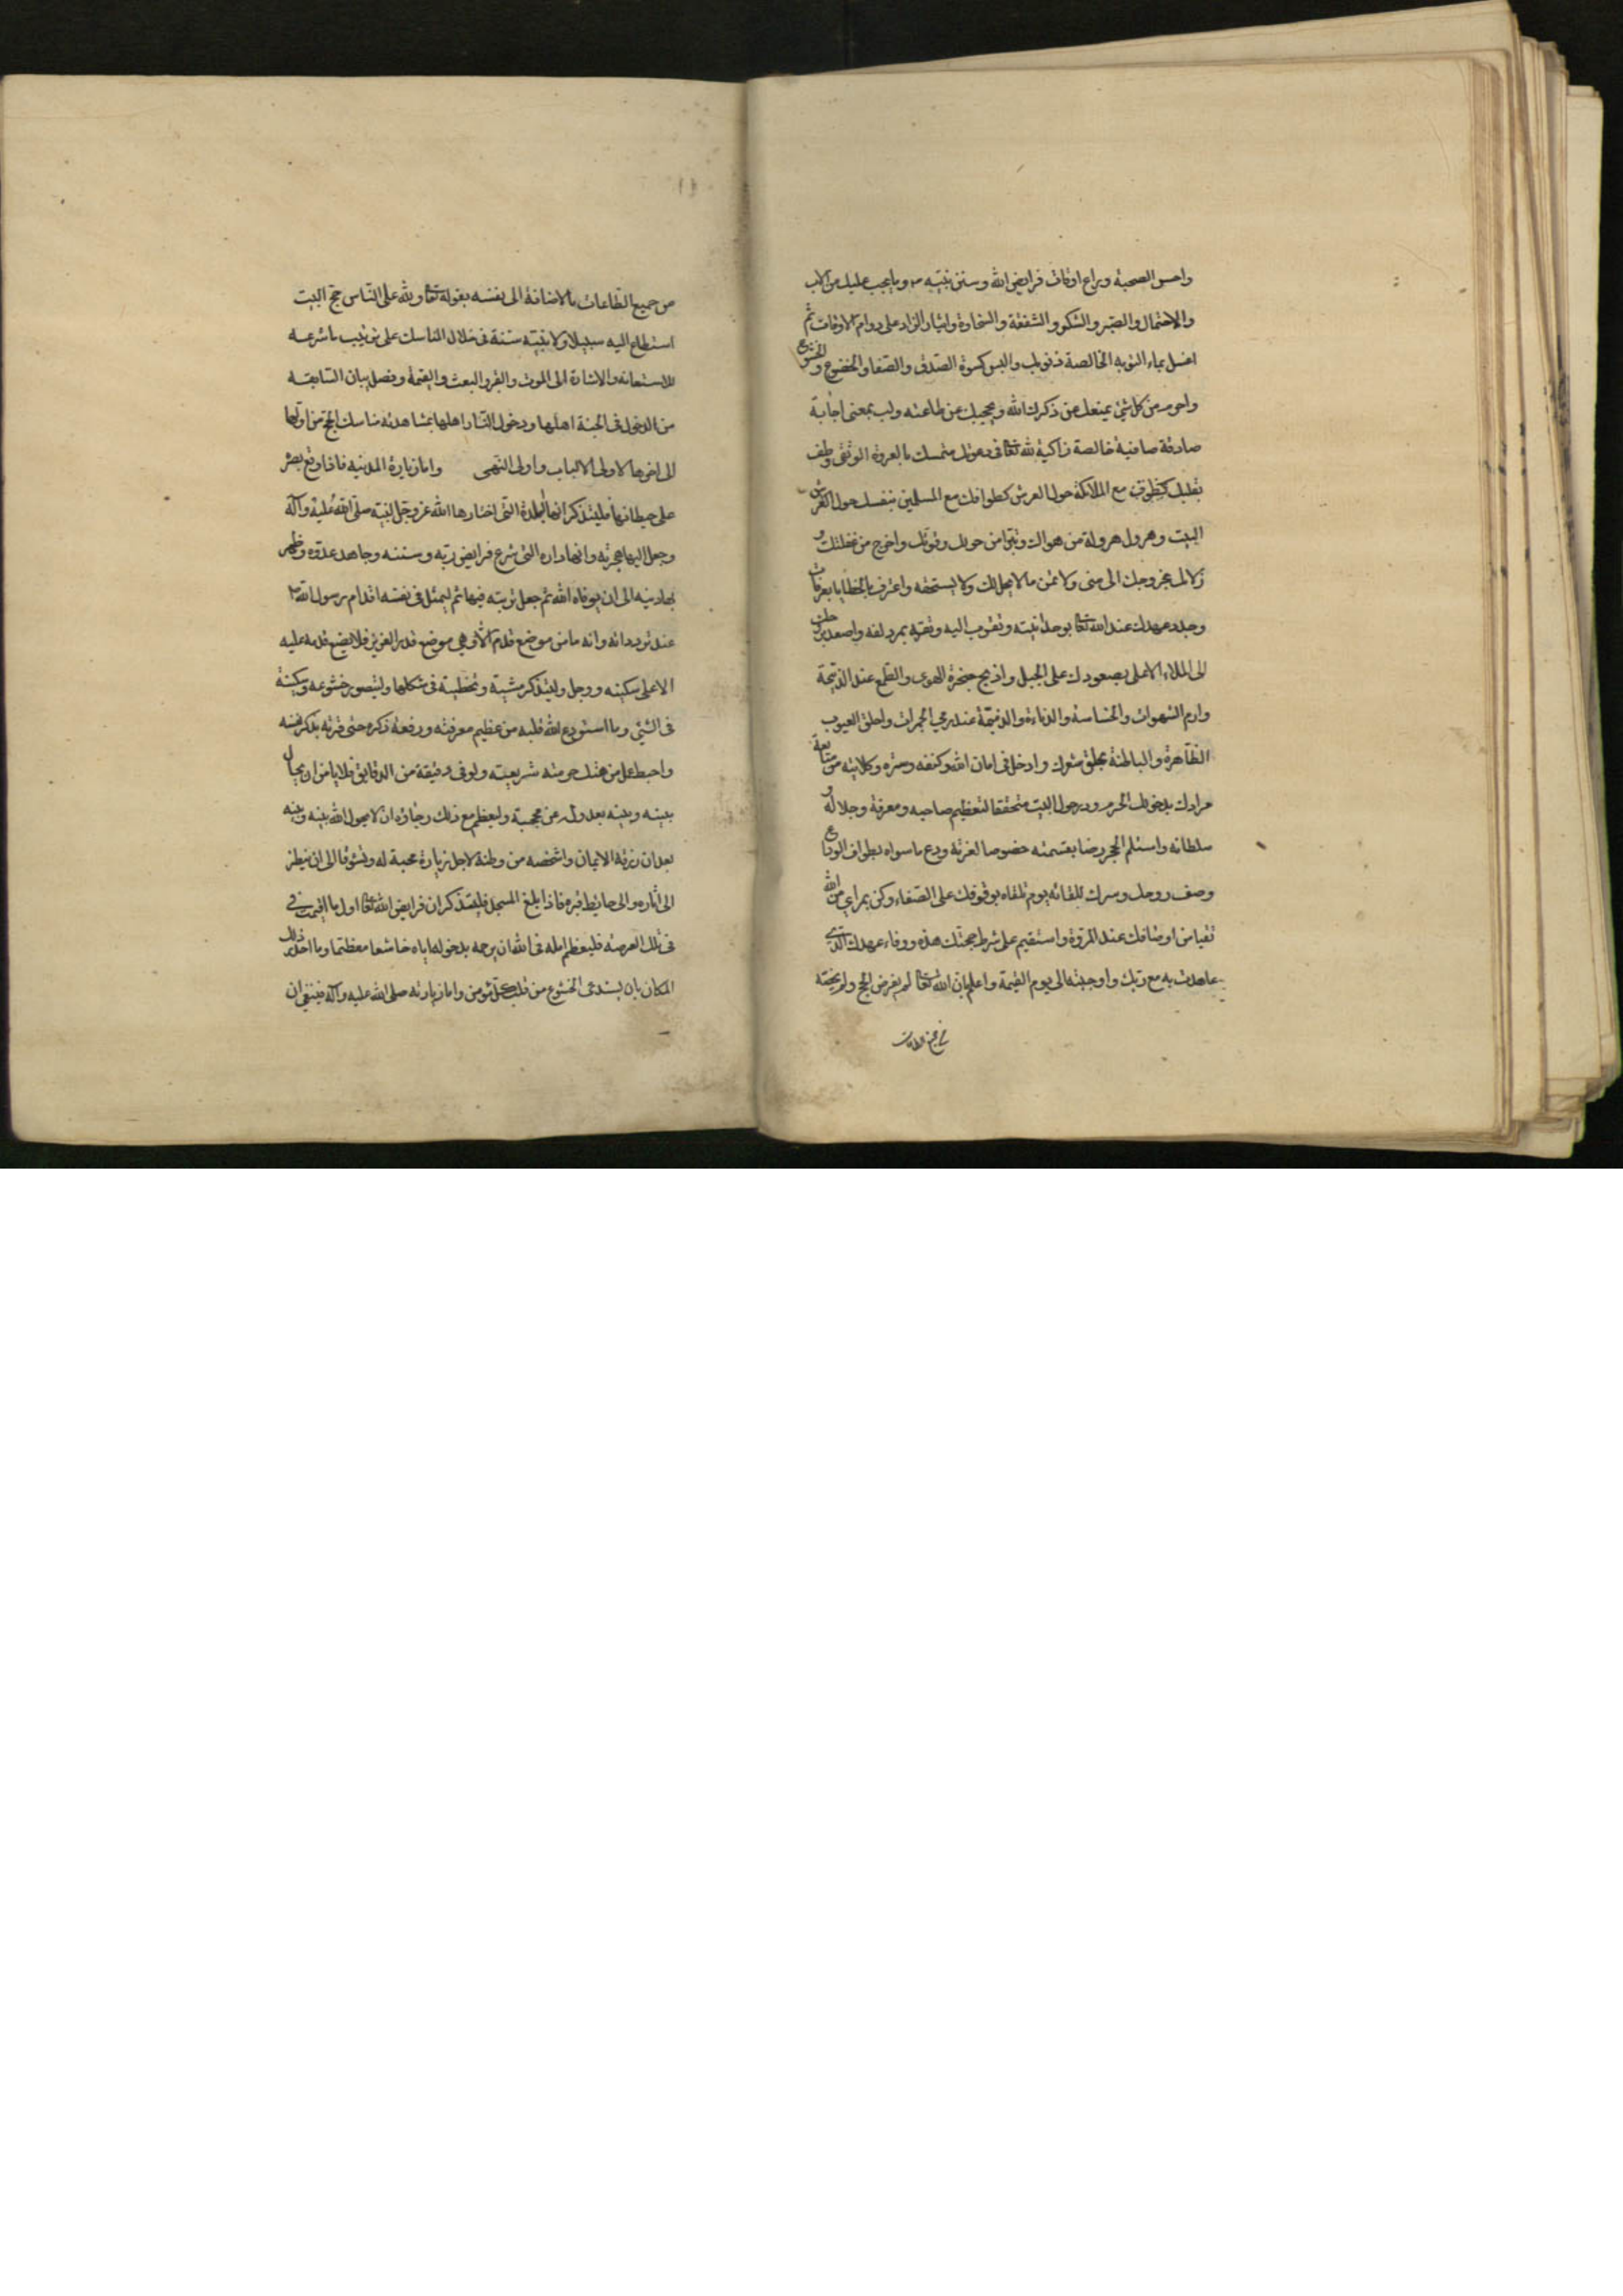 واحسن الصحبة وراع اوقات فرایض الله وسنن نبیه ص وما یجب علیک من الادب
والاحتمال والصبر والشکر والشفقة والسخاوة وایثار الزاد علی دوام الاوقات ثم
اغسل بماء التوبه الخالصة ذنوبک والبس کسوة الصدق والصفا والخضوع والخشوع
واحرم من کل شئ یمنعک عن ذکرک الله ویحجبک عن طاعته ولب بمعنی اجابة
صادقة صافیة خالصة زاکیة لله تعا فی دعوتک متمسک بالعروة الوثقی وطف
بقلبک کتطوف مع الملائکة حول العرش کطوافک مع المسلمین بنفسک حول
البیت وهرول هرولة من هواک وتبرا من حولک وقوتک واخرج من غفلتک و
زلالک بخروجک الی منی ولا تمن ما لا یحل لک ولا یستحقه واعترف بالخطایا بعرفات
وجدد عهدک عند الله تعا بوحدانیته وتقرب الیه وثقوبه بمزدلفه واصعد بروحک
الی الملاء الاعلی بصعودک علی الجبل واذبح حنجرة الهوی والطمع عند الذبیحة
وارم الشهوات والخساسة والدناءة والذمیمة عند رمی الجمرات واحلق العیوب
الظاهرة والباطنة بحلق شعرک وادخل فی امان الله وکنفه وستره وکلایته من متابعة
مرادک بدخولک الحرم ودر حول البیت متحققا لتعظیم صاحبه ومعرفة وجلاله و
سلطانه واستلم الحجر رضا بقسمته خضوصا لعزته ودع ما سواه بطواف الوداع
وصف روحک وسرک للقائه یوم تلقاه بوقوفک علی الصفاء وکن بمرای من الله
نقیا من اوصافک عند المروة واستقیم علی شرط حجتک هذه ووفاء عهدک الذی
عاهدت به مع ربک واوجبته الی یوم القیمة واعلم بان الله تعا لم یفرض الحج ولم یخصه
من جمیع الطاعات
من جمیع الطاعات بالاضافة الی نفسه بقوله تعا ولله علی الناس حج البیت
استطاع الیه سبیلا ولا نبیه سنة فی خلال المناسک علی ترتیب ما شرعه
للاستعانه والاشارة الی الموت والقبر والبعث والقیمة وفصل بیان السابقه
من الدخول فی الجنة اهلها ودخول النار اهلها بمشاهدة مناسک الحج من اولها
الی اخرها لاولی الالباب واولی النهی واما زیارة المدینه فاذا وقع بصر
علی حیطانها فلیتذکر انها البلدة التی اختارها الله عز وجل لنبیه صلی الله علیه وآله
وجعل الیها هجرته وانها داره التی شرع فرایض ربه وسننه وجاهد عدوه وظهر
بها دینه الی ان یوفاه الله ثم جعل تربته فیها ثم لیمثل فی نفسه اقدام رسول الله ص
عند تردداته وانه ما من موضع قدم الا وهی موضع قدم العزیز فلا یضع قدمه علیه
الا علی سکینه ووجل ولیتذکر مشیه وتخطیه فی سککها ولیتصور خشوعه وسکینة
فی الشئی وما استودع الله قلبه من عظیم معرفته ورفعة ذکره حتی قرنه بذکر نفسه
واحبط عمل من هتک حرمته شریعته ولو فی دقیقة من الدقایق فلا یامن ان یحال
بینه وبینه بعدوله عن محجبة ولیعظم مع ذلک رجاؤه ان لا یحول الله بینه وبینه
بعد ان رزقه الایمان واشخصه من وطنه لاجل زیارة محبة له وتشوقا الی ان ینظر
الی اثاره والی حایط قبره فاذا بلغ المسجد فلیتذکر ان فرایض الله تعا اول ما اقیمت فی
فی تلک العرصه فلیعظم امله فی الله ان یرحمه بدخوله ایاه خاشعا معظما وما اجدر ذلک
المکان بان یستدعی الخشوع من قلب کل مؤمن واما زیارته صلی الله علیه وآله فینبغی ان